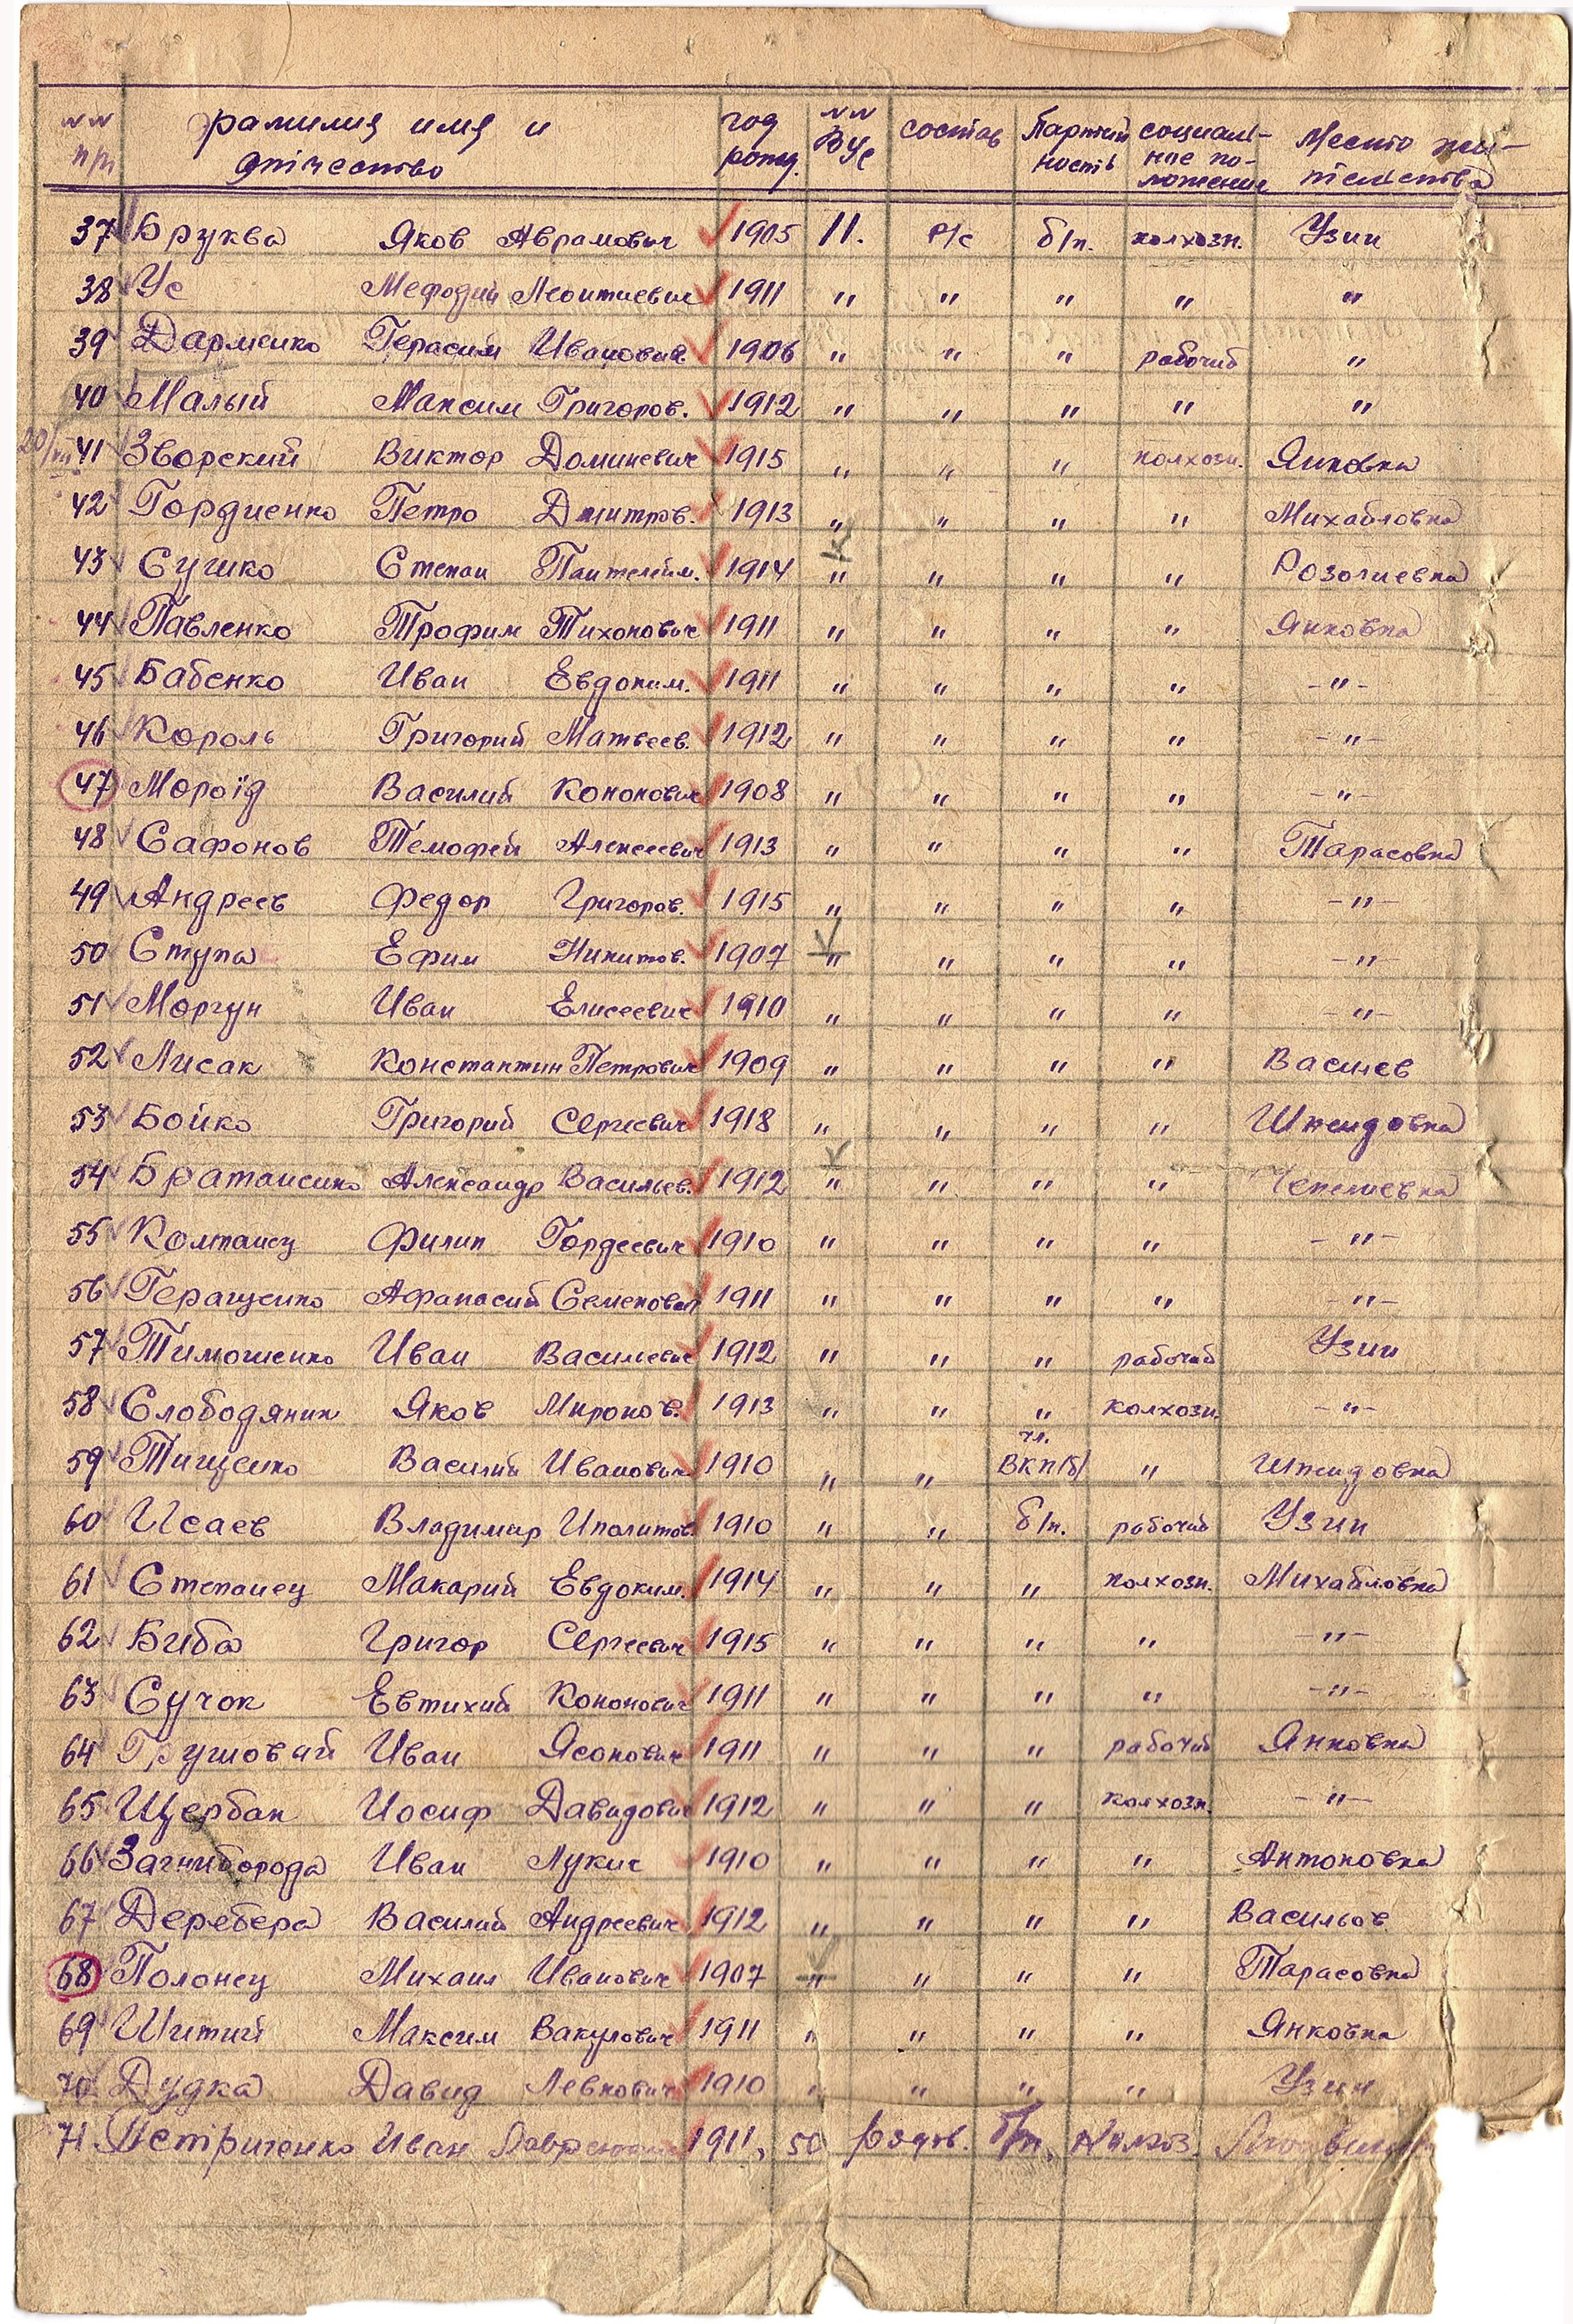 NN пп фамилия имя и отчество год рожд. NN ВУС состав Партийность социаль-ное по-ложение Место жи-тельства
37 Бруква Яков Аврамович 1905 11. Р/с б/п. колхозн. Узин
38 Ус Мефодий Леонтиевич 1911 " " " " "
39 Дарменко Герасим Иванович 1906 " " " рабочий "
40 Малый Максим Григоров. 1912 " " " " "
41 Зворский Виктор Доминевич 1915 " " " колхозн. Янковка
42 Гордиенко Петро Дмитров. 1913 " " " " Михайловка
43 Сушко Степан Пантелейм. 1914 " " " " Розалиевка
44 Павленко Трофим Тихонович 1911 " " " " Янковка
45 Бабенко Иван Евдоким. 1911 " " " " -"-
46 Король Григорий Матвеев. 1912 " " " " -"-
47 Мороїд Василий Кононович 1908 " " " " -"-
48 Сафонов Темофей Алексеевич 1913 " " " " Тарасовка
49 Андреев Федор Григоров. 1915 " " " " -"-
50 Ступа Ефим Никитов. 1907 " " " " -"-
51 Моргун Иван Елисеевич 1910 " " " " -"-
52 Лисак Константин Петрович 1909 " " " " Василев
53 Бойко Григорий Сергеевич 1918 " " " " Шпендовка
54 Братаненко Александр Васильев. 1912 " " " " Чепелиевка
55 Колтанец Филип Гордеевич 1910 " " " " -"-
56 Геращенко Афанасий Семенович 1911 " " " " -"-
57 Тимошенко Иван Василиевич 1912 " " " рабочий Узин
58 Слободяник Яков Миронов. 1913 " " " колхозн. -"-
59 Тищенко Василий Иванович 1910 " " чл. ВКП/б/ " Шпендовка
60 Исаев Владимир Иполитов. 1910 " " б/п. рабочий Узин
61 Степанец Макарий Евдоким. 1914 " " " колхозн. Михайловка
62 Биба Григор Сергеевич 1915 " " " " -"-
63 Сучок Евтихий Кононович 1911 " " " " -"-
64 Грушовий Иван Ясонович 1911 " " " рабочий Янковка
65 Щербак Иосиф Давидович 1912 " " " колхозн. -"-
66 Загниборода Иван Лукич 1910 " " " " Антоновка
67 Деребера Василий Андреевич 1912 " " " " Васильов
68 Полонец Михаил Иванович 1907 " " " " Тарасовка
69 Шитий Максим Вакулович 1911 " " " " Янковка
70 Дудка Давид Левкович 1910 " " " " Узин
71. Петриченко Иван 1911, 50 рядов. б/п, Колхоз.